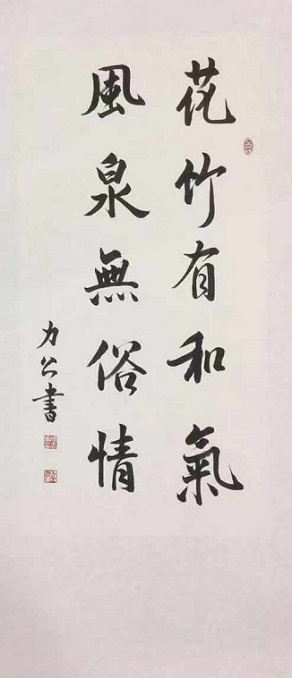 花竹有和氣
風泉無俗情
力公書